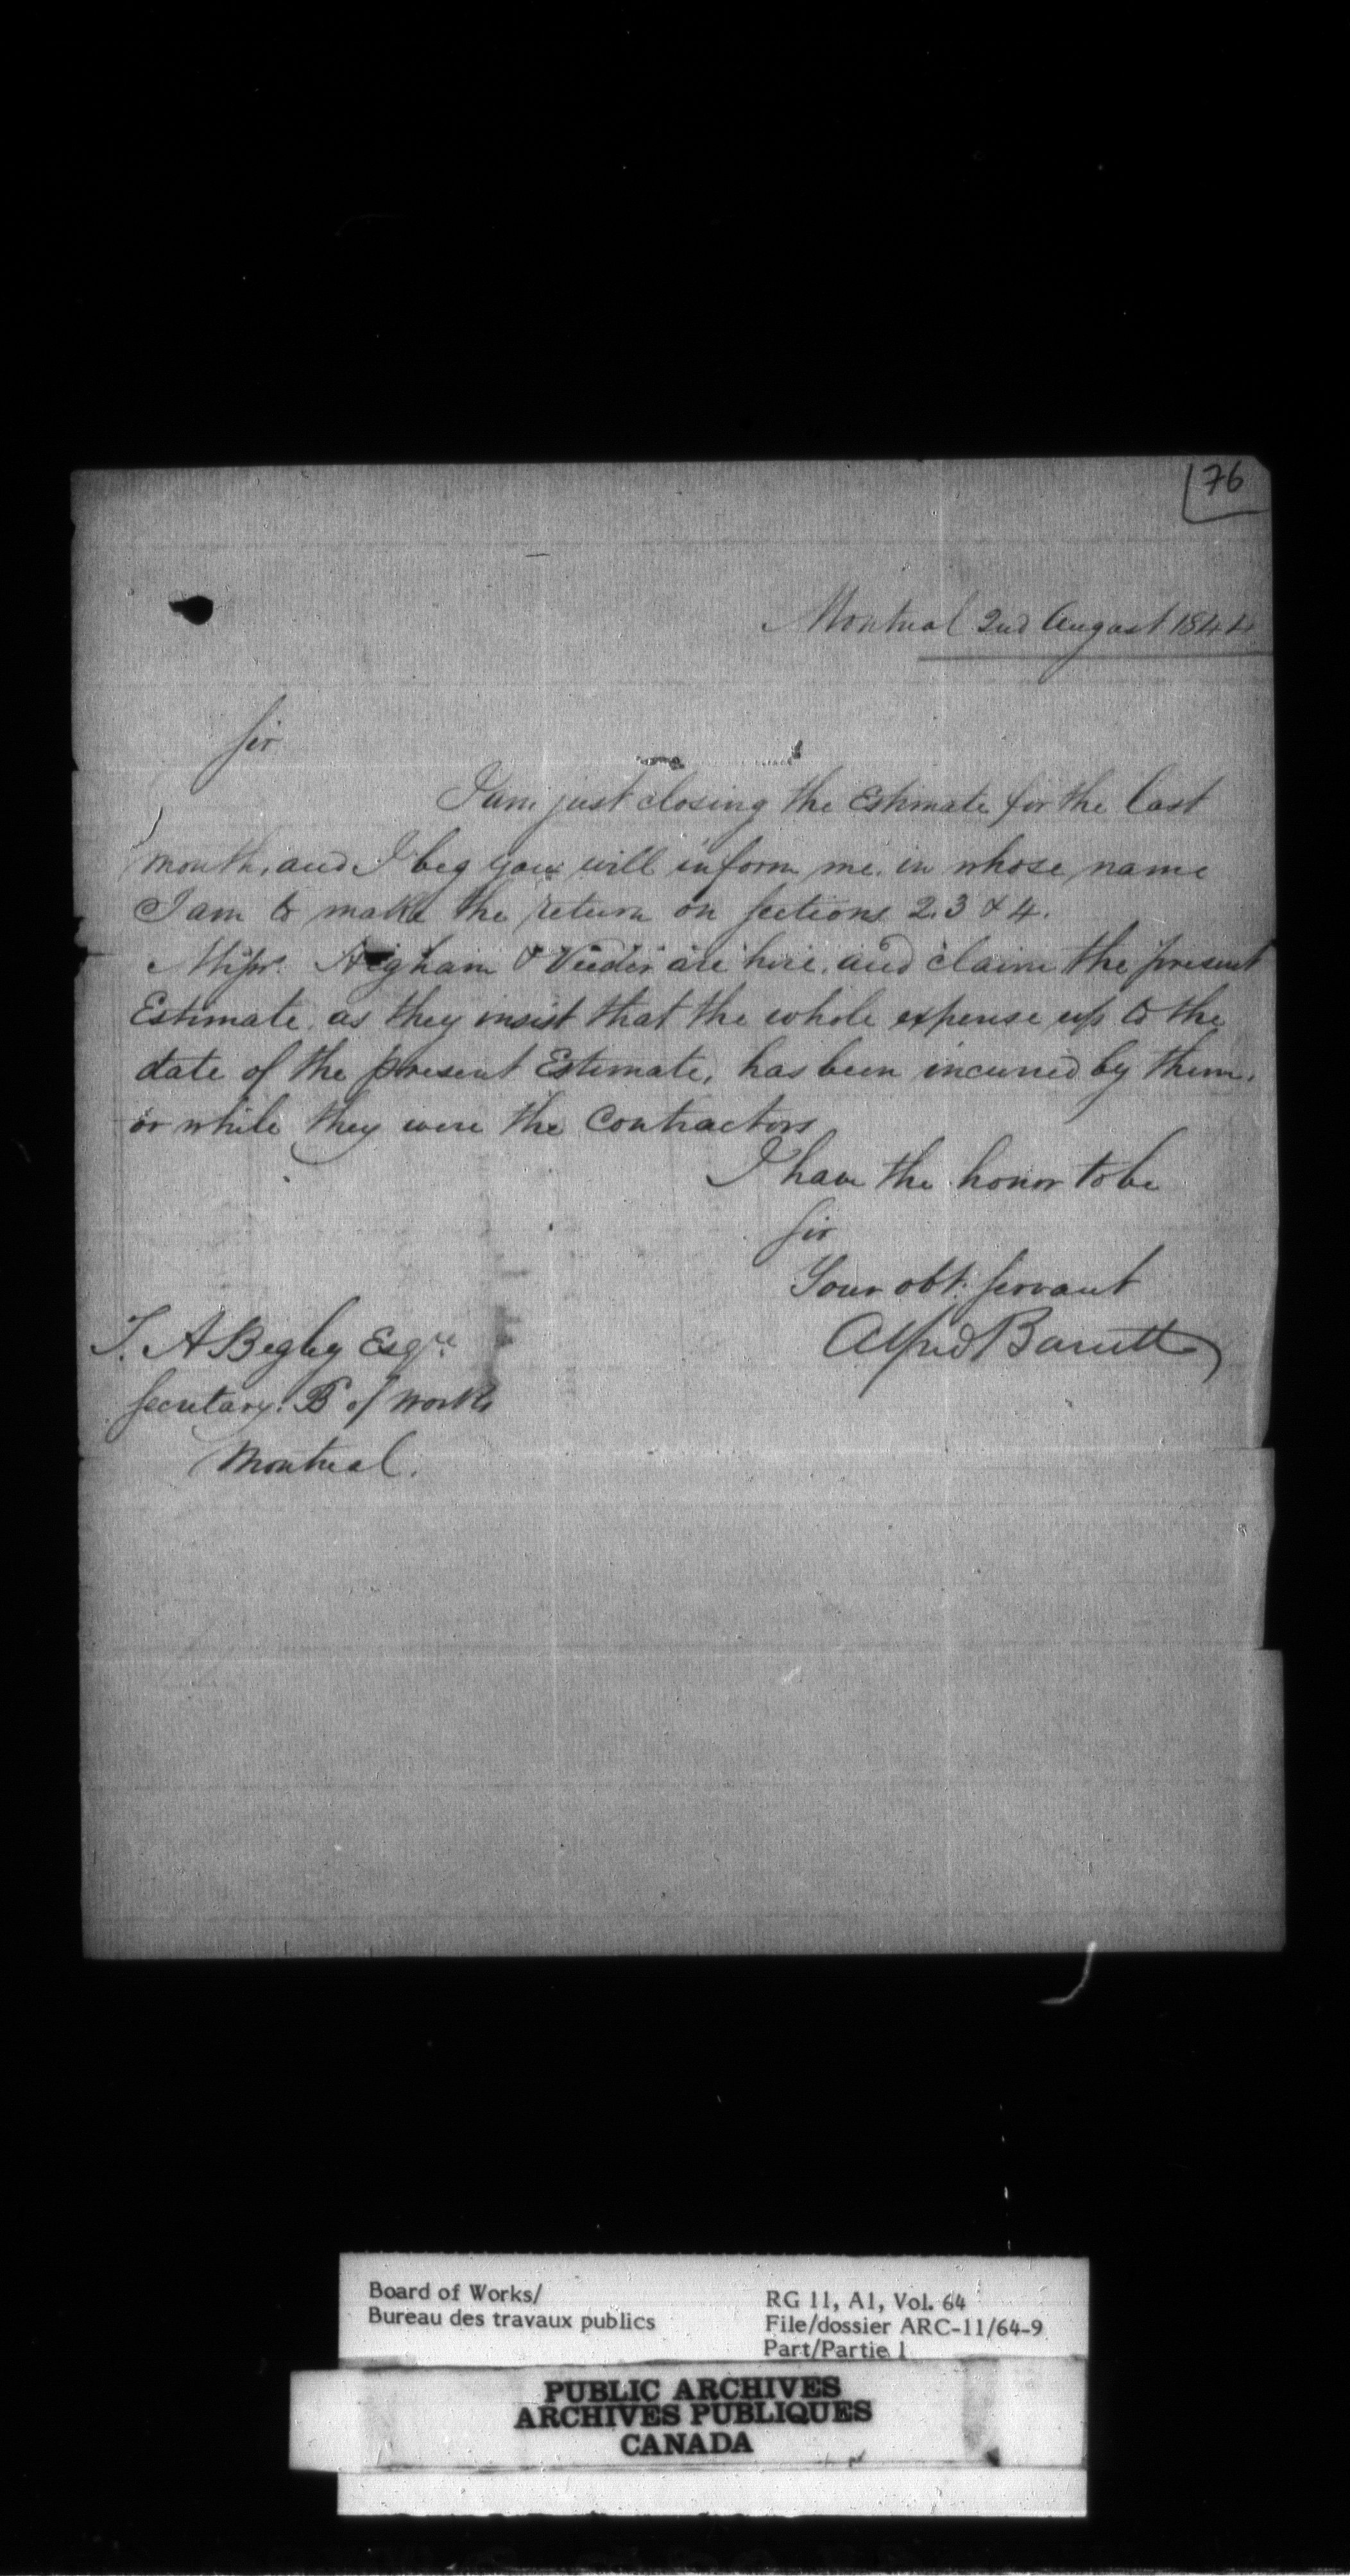 76
Montreal 2nd August 1844
Sir
I am just closing the Estimate for the last
month, and I beg you will inform me, in whose name
I am to make the return on Sections 2.3 & 4.
Messrs. Higham & Vieder are here, and claim the present
Estimate, as they insist that the whole expense up to the
date of the present Estimate, has been incurred by them,
or while they were the Contractors
I have the honor to be
Sir
Your obt. Servant
Alfred Barrett
T. A Begley Esqre
Secretary. B of Works
Montreal.
Board of Works/
Bureau des travaux publics
RG 11, A1, Vol. 64
File/dossier ARC-11/64-9
Part/Partie 1
PUBLIC ARCHIVES
ARCHIVES PUBLIQUES
CANADA